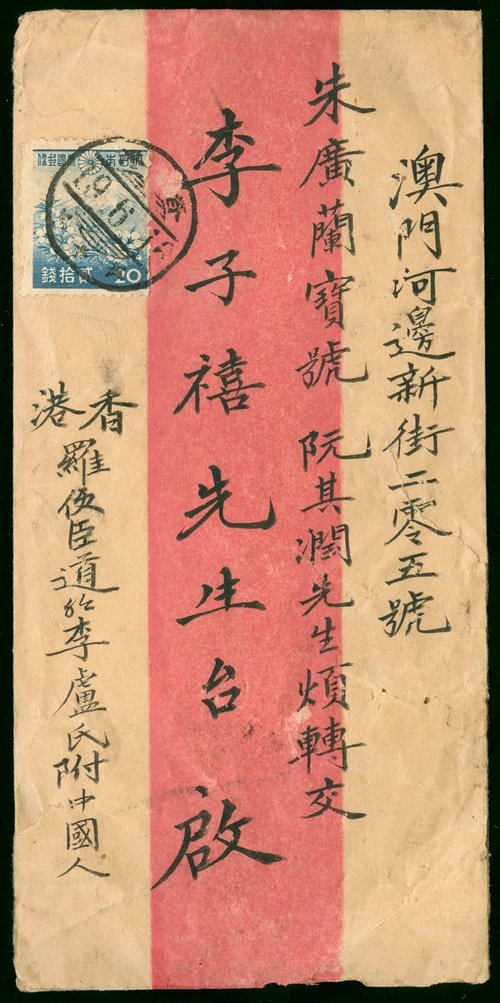 澳門河邊新街二零五號
朱廣蘭寶號 阮其潤先生煩轉交
李子禧先生台啟
香港
羅便臣道 李盧氏附中國人
大日本帝國郵便
貳拾錢
20
19.6.